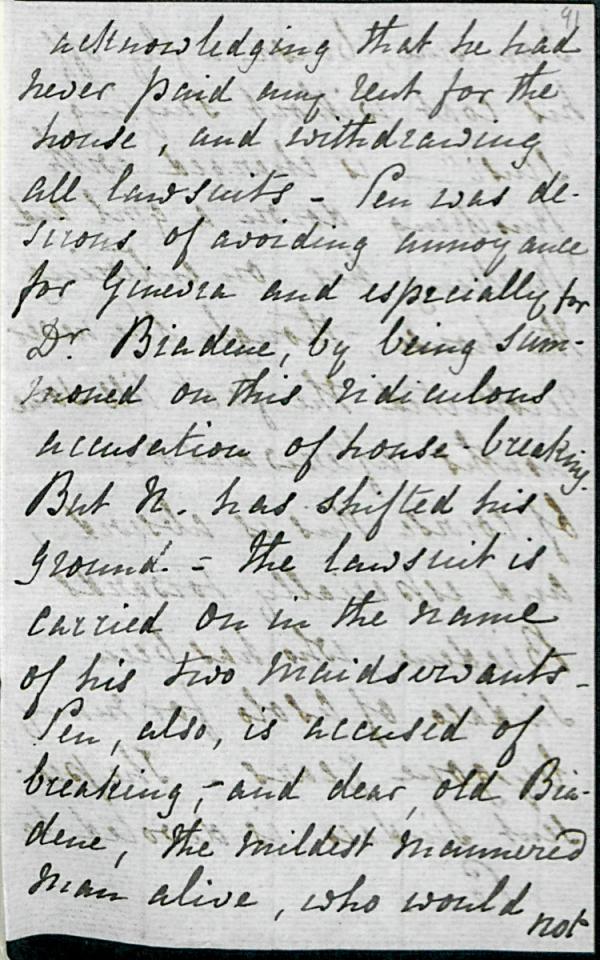 91
acknowledging that he had
never paid any rent for the
house, and withdrawing
all lawsuits - Pen was de-
sirous of avoiding annoyance
for Ginevra and especially for
Dr. Biadene, by being sum-
moned on this ridiculous
accusation of house-breaking.
But N. has shifted his
ground. - The lawsuit is
carried on in the name
of his two maidservants -
Pen, also, is accused of
breaking, - and dear, old Bia-
dene, the mildest mannered
man alive, who would
not